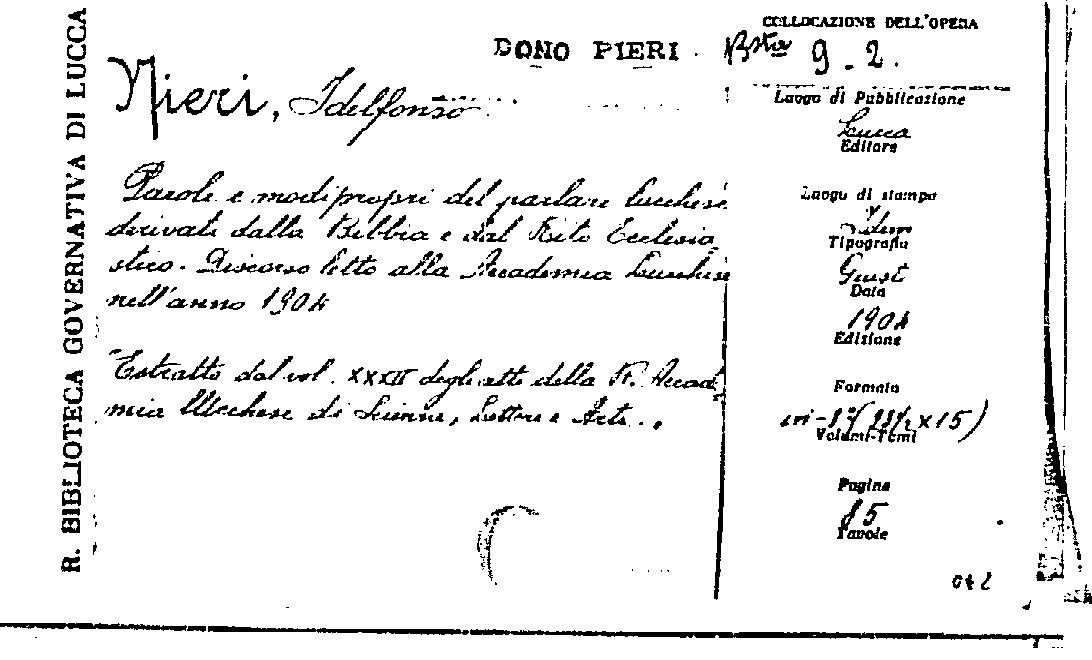 R. BIBLIOTECA GOVERNATIVA DI LUCCA
DONO PIERI.
COLLOCAZIONE DELL'OPERA
Bsta 9-2.
Nieri, Idelfonso
Parole e modi propri del parlare lucchese
derivati dalla Bibbia e dal Rito Ecclesia
stico. Discorso letto alla Accademia Lucchese
nell'anno 1904
Estratto dal vol. XXXII degli atti della R. Accade
mia Lucchese di Scienze, Lettere e Arti.
Luogo di Pubblicazione
Lucca
Editore
Luogo di stampa
Idem
Tipografia
Giusti
Data
1904
Edizione
Formato
in-8°
x 15)
Volumi-Tomi
Pagine
85
Tavole